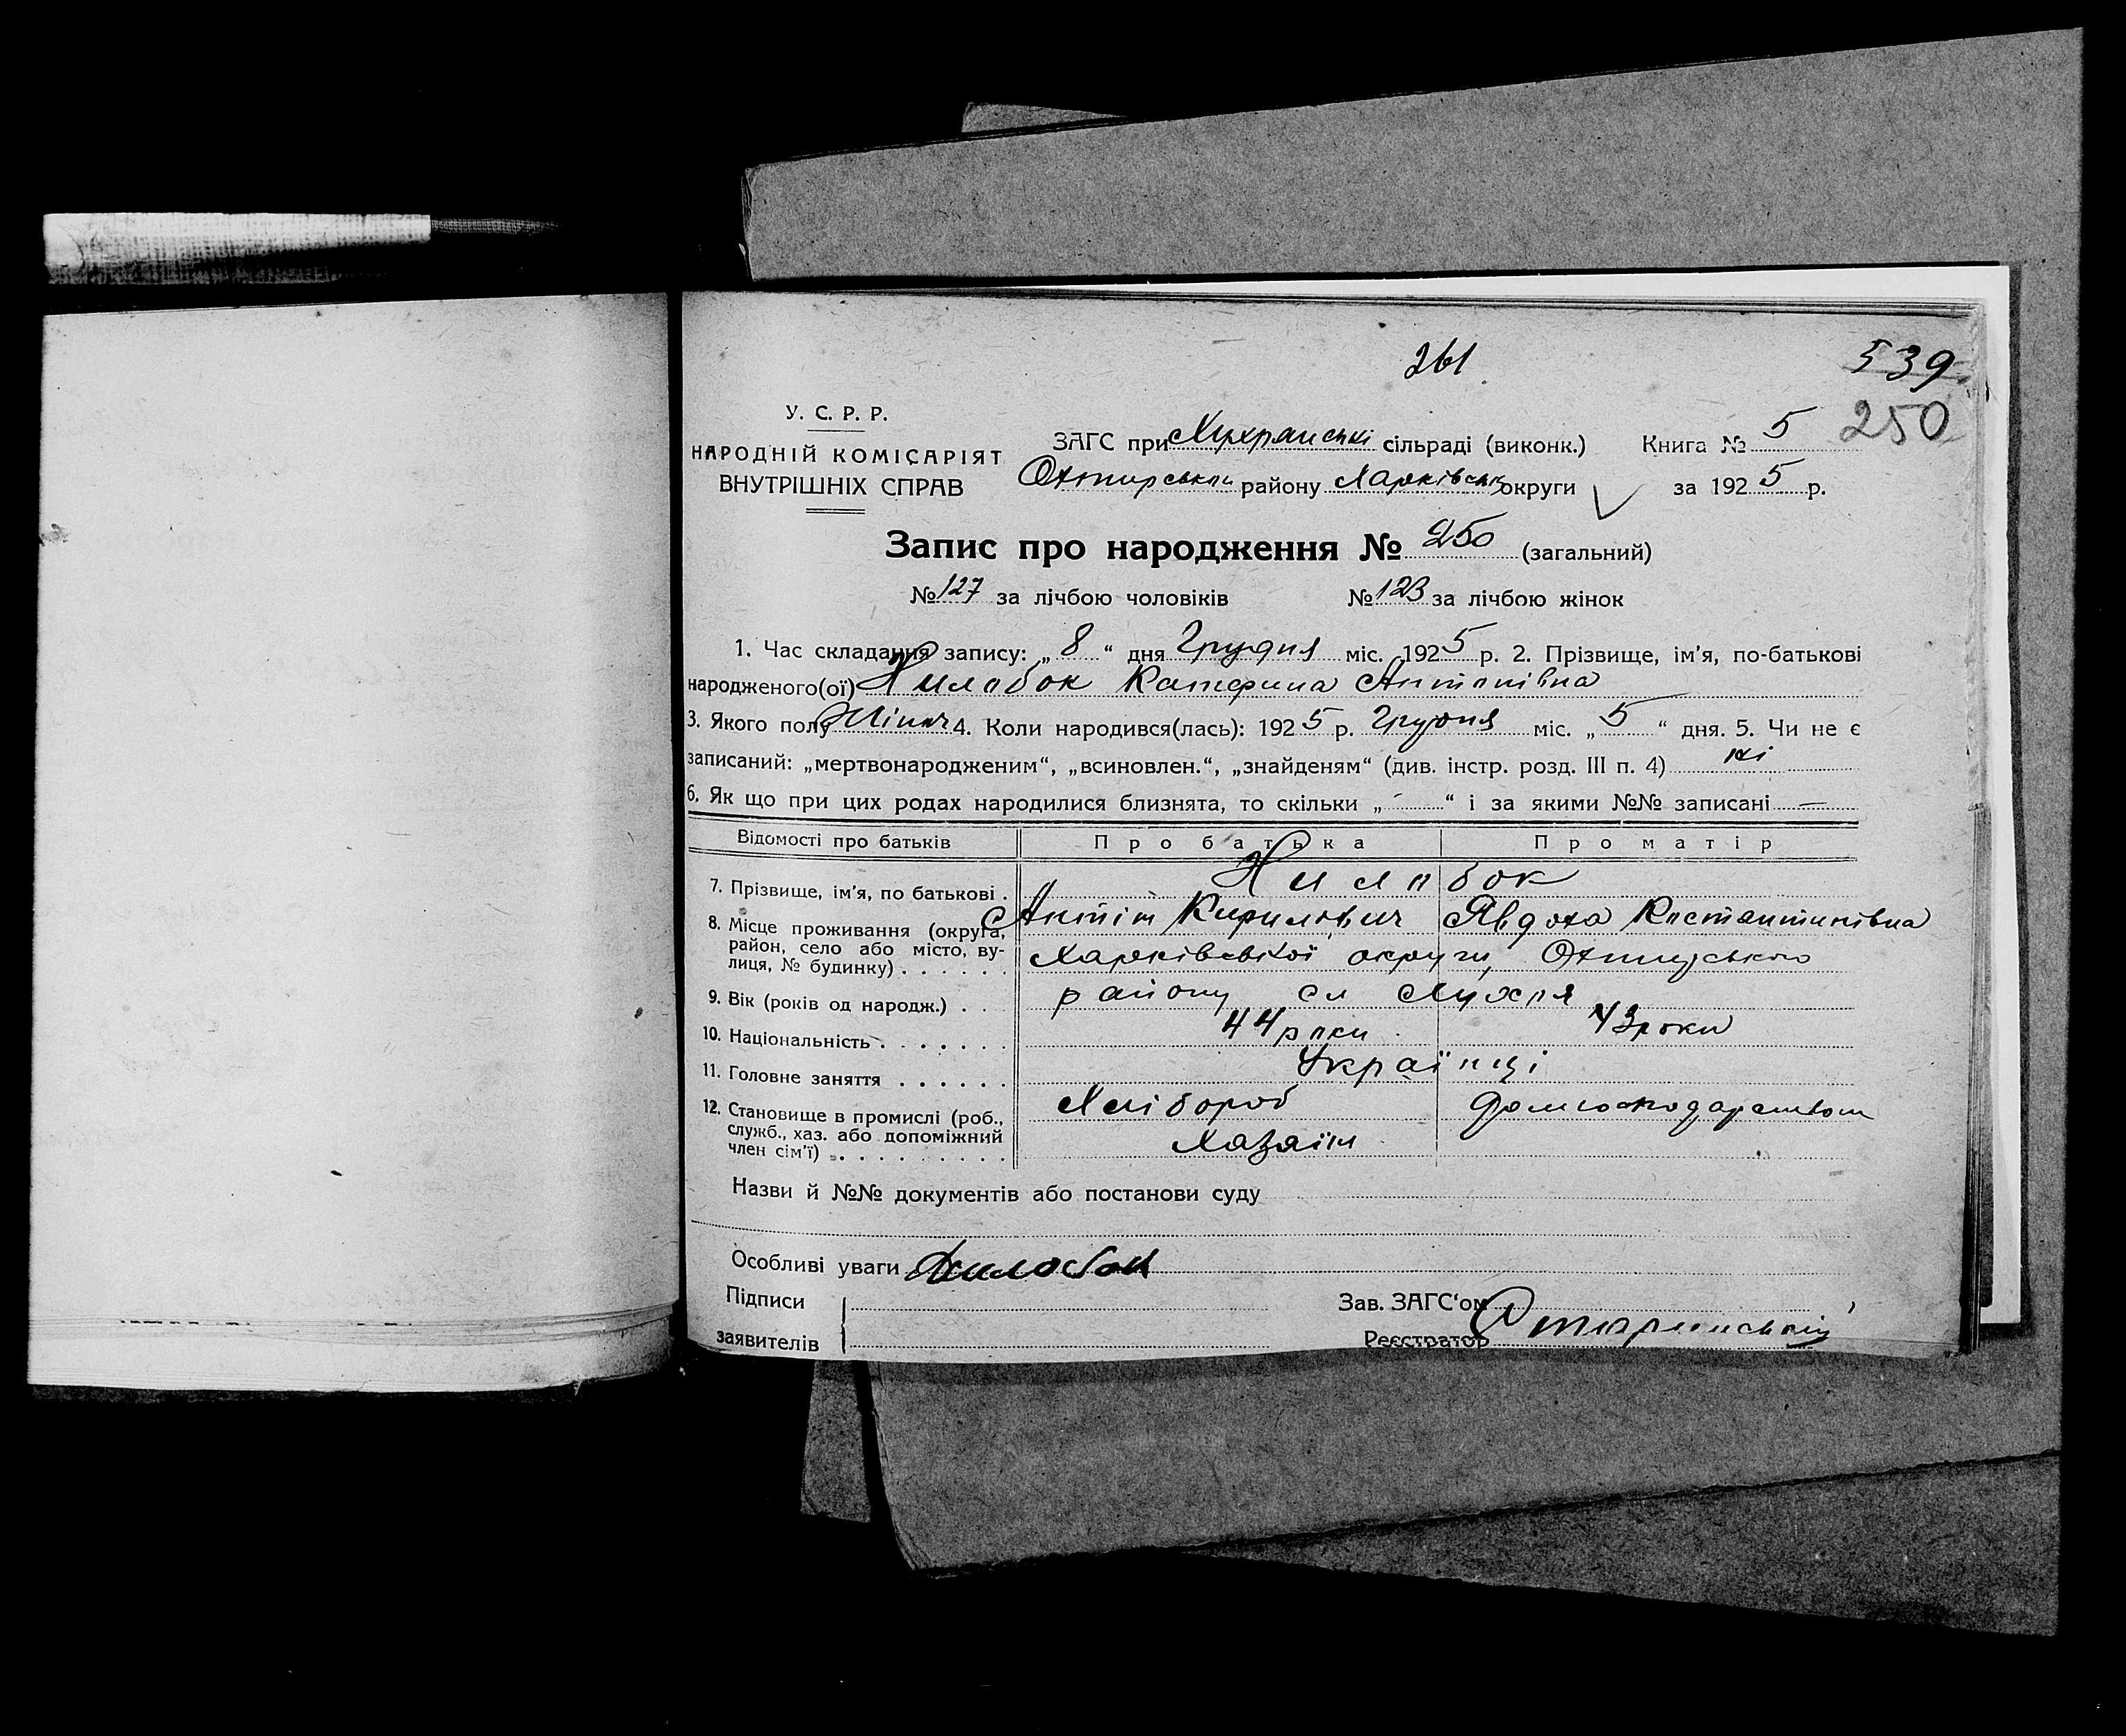 261
539
250
У. С. Р. Р.
НАРОДНІЙ КОМІСАРІЯТ
ВНУТРІШНІХ СПРАВ
ЗАГС при Хухранські сільраді (виконк.) Книга № 5
Охтирськом району Харківськ округи за 1925 р.
Запис про народження № 250 (загальний)
№ 127 за лічбою чоловіків № 123 за лічбою жінок
1. Час складання запису: „ 8 “ дня Грудня міс. 1925 р. 2. Прізвище, ім'я, по-батькові
народженого(ої) Жилобок Катерина Антонівна
3. Якого полу Жіноч 4. Коли народився(лась): 1925 р. Грудня міс. „ 5 “ дня. 5. Чи не є
записаний: „мертвонародженим“, „всиновлен.“, „знайденям“ (див. інстр. розд. III п. 4) ні
6. Як що при цих родах народилися близнята, то скільки „ - “ і за якими №№ записані —
Відомості про батьків Про батька Про матір
7. Прізвище, ім'я, по батькові . Жилобок
Антін Кирилович Явдоха Костантинівна
8. Місце проживання (округа,
район, село або місто, ву-
лиця, № будинку) . . . . . . Харківської округи, Охтирського
району сл Хухря
9. Вік (років од народж.) . . 44 роки 43 роки
10. Національність . . . . . . . Українці
11. Головне заняття . . . . . . Хлібороб Домгосподарством
12. Становище в промислі (роб.,
служб., хаз. або допоміжний
член сім'ї) . . . . . . . . . Хазяїн
Назви й №№ документів або постанови суду
Особливі уваги Жилобок
Підписи Зав. ЗАГС'ом
заявителів Реєстратор